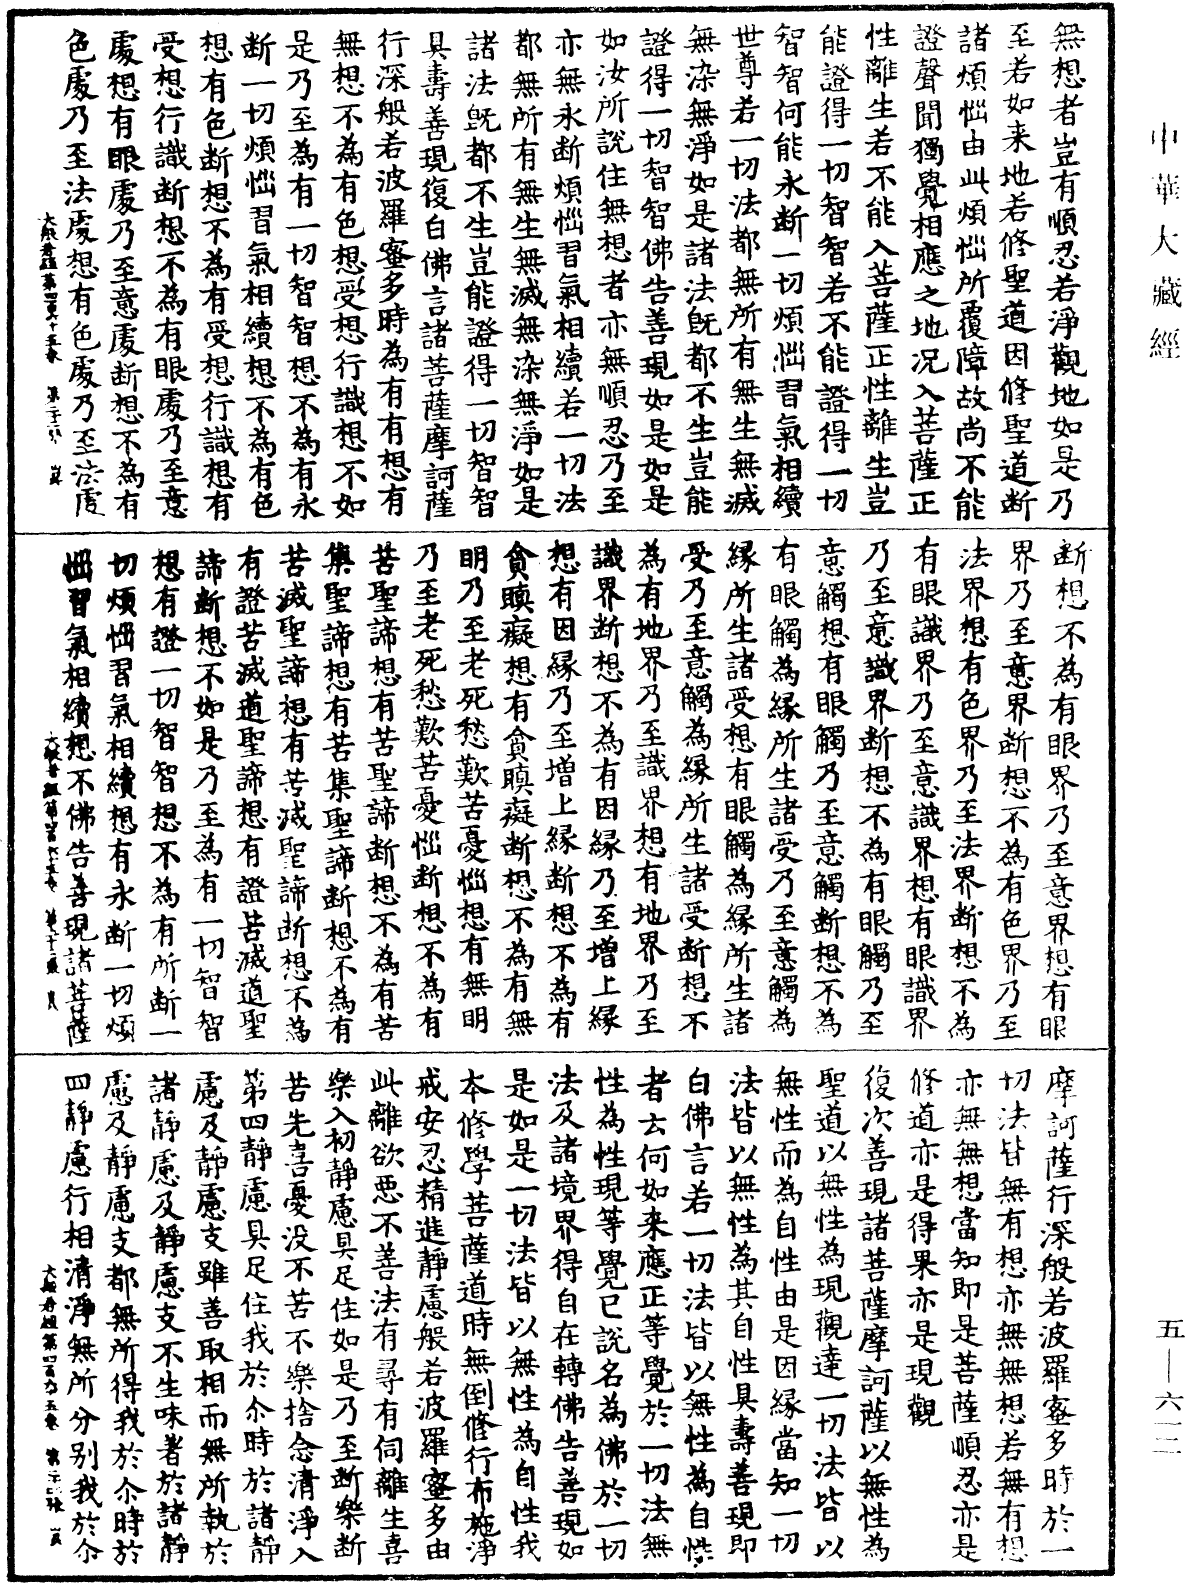 中華大藏經
無想者豈有順忍若淨觀地如是乃
至若如来地若修聖道因修聖道断
諸煩惱由此煩惱所覆障故尚不能
證聲聞獨覺相應之地况入菩薩正
性離生若不能入菩薩正性離生豈
能證得一切智智若不能證得一切
智智何能永断一切煩惱習氣相續
世尊若一切法都無所有無生無滅
無染無淨如是諸法既都不生豈能
證得一切智智佛告善現如是如是
如汝所說住無想者亦無順忍乃至
亦無永断煩惱習氣相續若一切法
都無所有無生無滅無染無淨如是
諸法既都不生豈能證得一切智智
具壽善現復白佛言諸菩薩摩訶薩
行深般若波羅蜜多時為有有想有
無想不為有色想受想行識想不如
是乃至為有一切智智想不為有永
断一切煩惱習氣相續想不為有色
想有色断想不為有受想行識想有
受想行識断想不為有眼處乃至意
處想有眼處乃至意處断想不為有
色處乃至法處想有色處乃至法處
断想不為有眼界乃至意界想有眼
界乃至意界断想不為有色界乃至
法界想有色界乃至法界断想不為
有眼識界乃至意識界想有眼識界
乃至意識界断想不為有眼觸乃至
意觸想有眼觸乃至意觸断想不為
有眼觸為緣所生諸受乃至意觸為
緣所生諸受想有眼觸為緣所生諸
受乃至意觸為緣所生諸受断想不
為有地界乃至識界想有地界乃至
識界断想不為有因緣乃至增上緣
想有因緣乃至增上緣断想不為有
貪瞋癡想有貪瞋癡断想不為有無
明乃至老死愁歎苦憂惱想有無明
乃至老死愁歎苦憂惱断想不為有
苦聖諦想有苦聖諦断想不為有苦
集聖諦想有苦集聖諦断想不為有
苦滅聖諦想有苦滅聖諦断想不為
有證苦滅道聖諦想有證苦滅道聖
諦断想不如是乃至為有一切智智
想有證一切智智想不為有所断一
切煩惱習氣相續想有永断一切煩
惱習氣相續想不佛告善現諸菩薩
摩訶薩行深般若波羅蜜多時於一
切法皆無有想亦無無想若無有想
亦無無想當知即是菩薩順忍亦是
修道亦是得果亦是現觀
復次善現諸菩薩摩訶薩以無性為
聖道以無性為現觀達一切法皆以
無性而為自性由是因緣當知一切
法皆以無性為其自性具壽善現即
白佛言若一切法皆以無性為自性
者云何如來應正等覺於一切法無
性為性現等覺已說名為佛於一切
法及諸境界得自在轉佛告善現如
是如是一切法皆以無性為自性我
本修學菩薩道時無倒修行布施淨
戒安忍精進靜慮般若波羅蜜多由
此離欲惡不善法有尋有伺離生喜
樂入初靜慮具足住如是乃至断樂断
苦先喜憂没不苦不樂捨念清淨入
第四靜慮具足住我於尒時於諸靜
慮及靜慮支雖善取相而無所執於
諸靜慮及靜慮支不生味著於諸靜
慮及靜慮支都無所得我於尒時於
四靜慮行相清淨無所分别我於尒
五—六一三